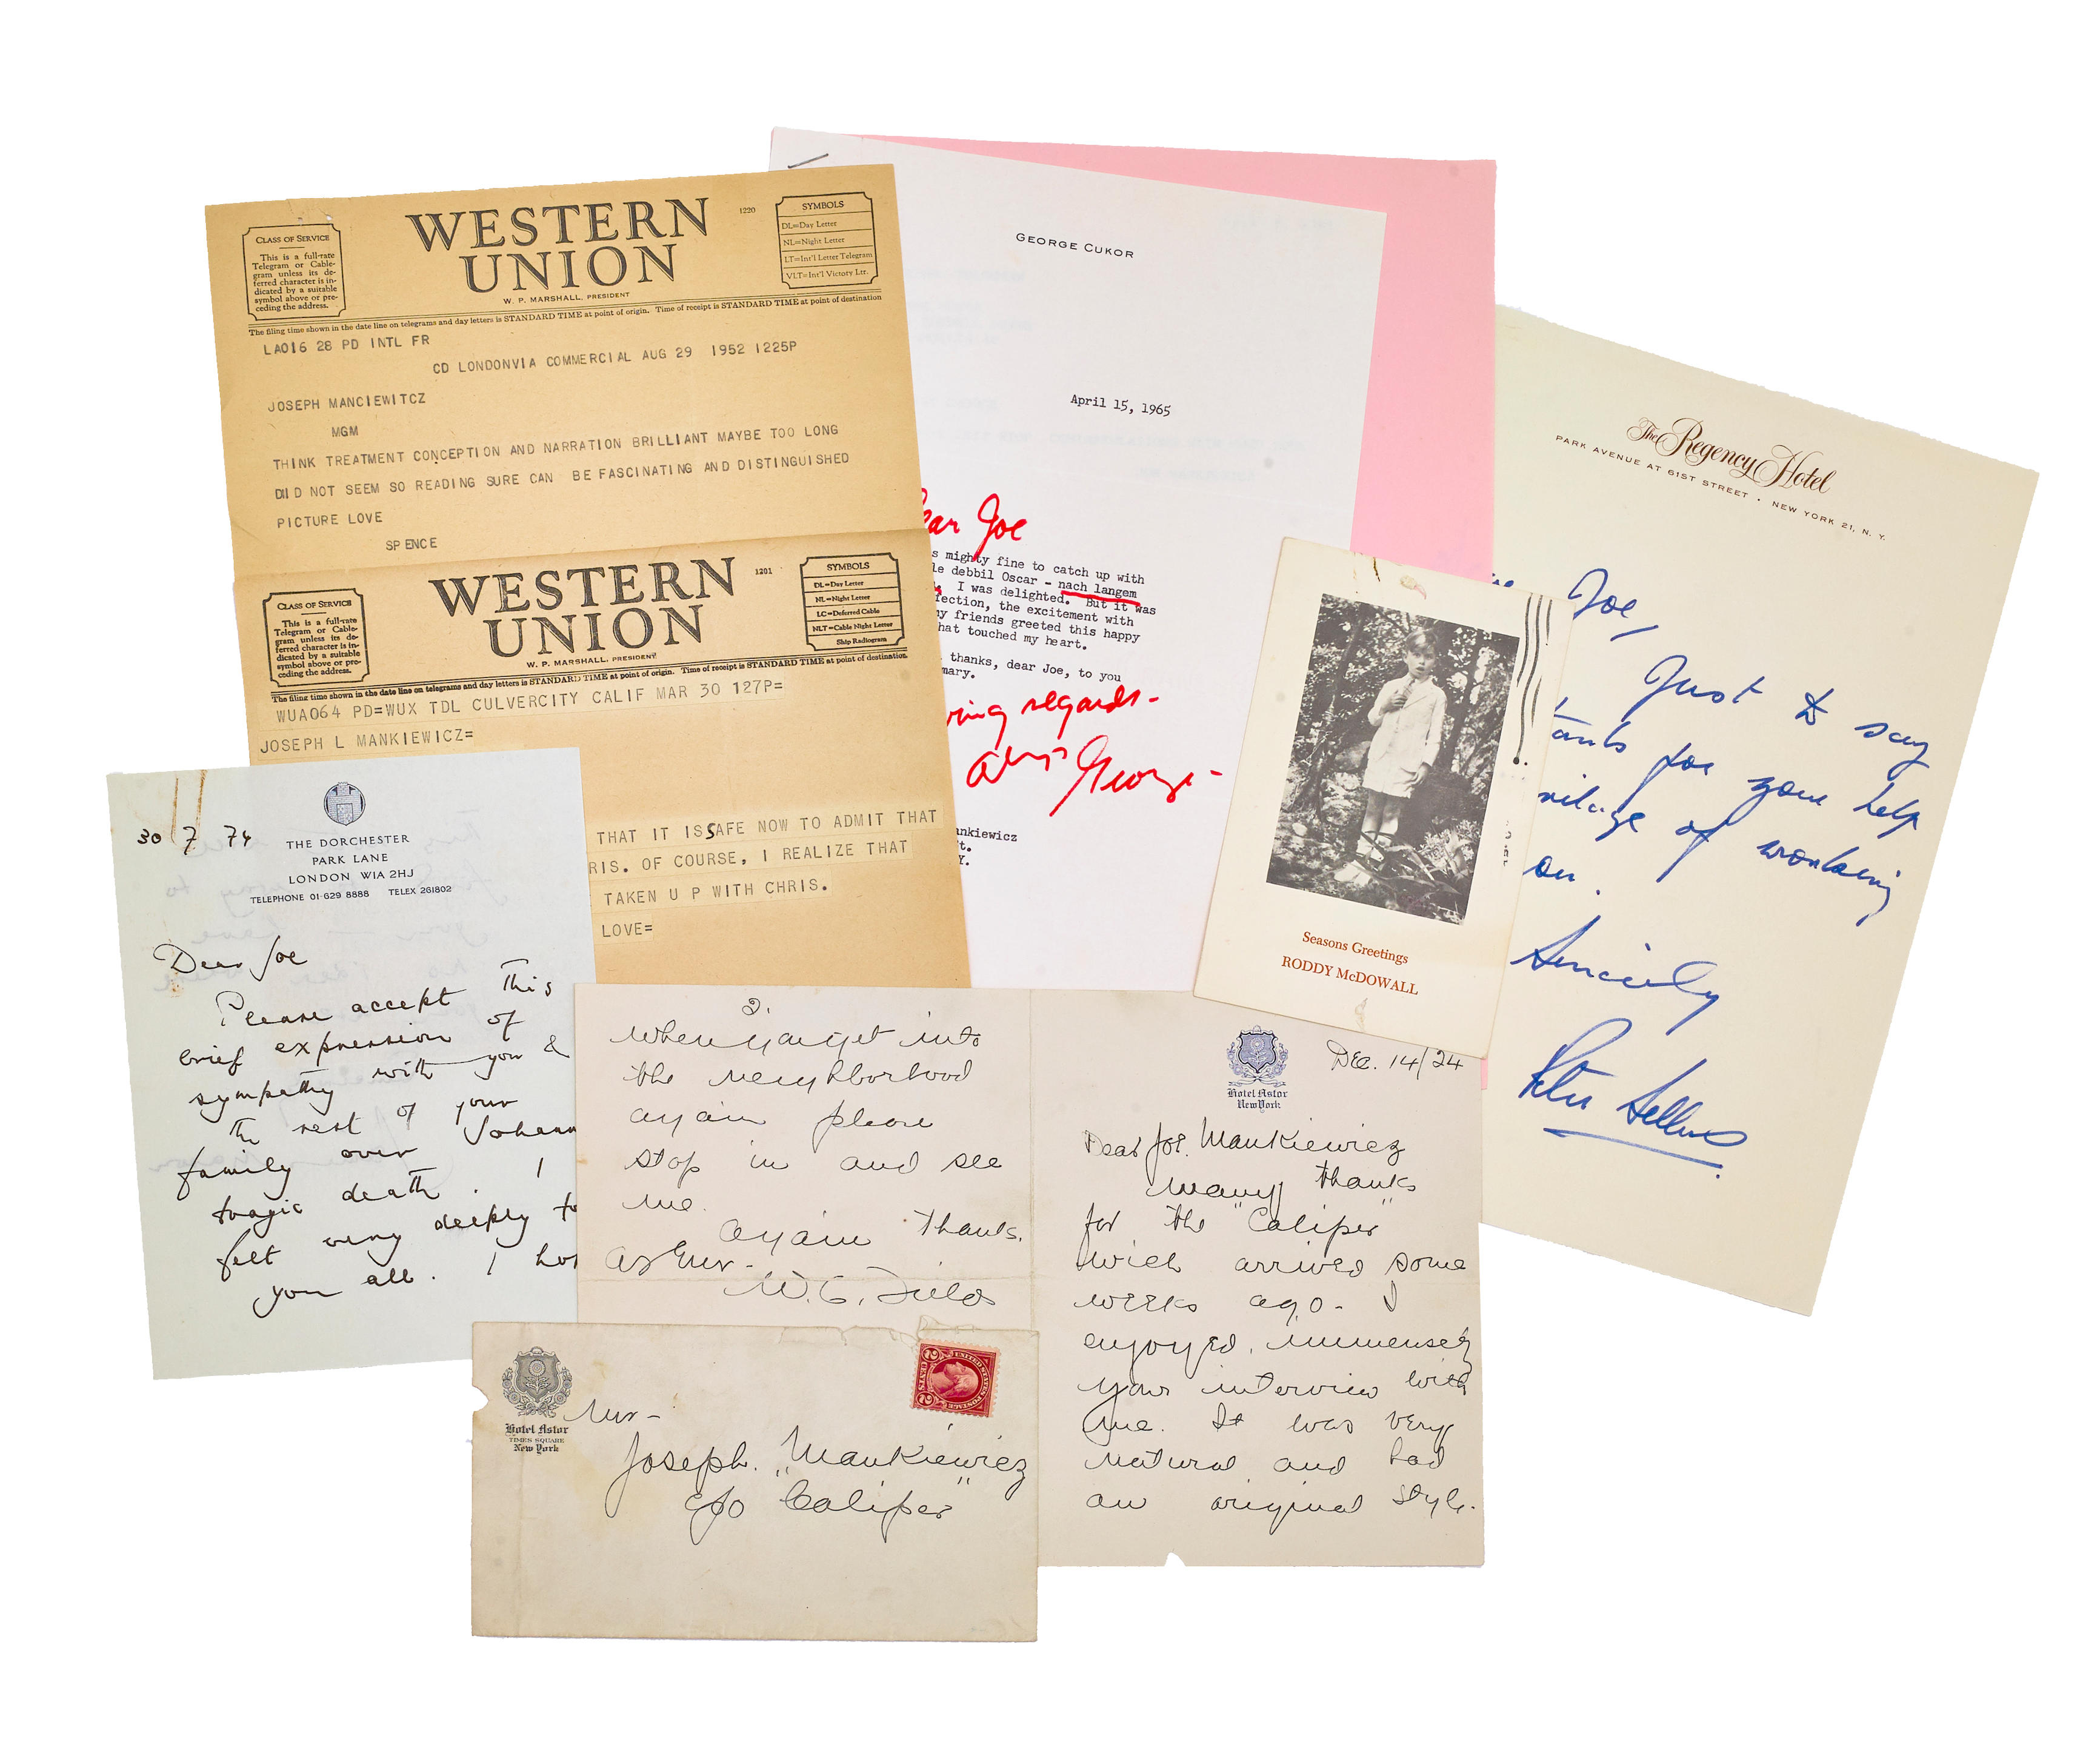 CLASS OF SERVICE
This is a full-rate
Telegram or Cable-
gram unless its de-
ferred character is in-
dicated by a suitable
symbol above or pre-
ceding the address.
WESTERN
UNION
W. P. MARSHALL, PRESIDENT
1220
SYMBOLS
DL=Day Letter
NL=Night Letter
LT=Int'l Letter Telegram
VLT=Int'l Victory Ltr.
The filing time shown in the date line on telegrams and day letters is STANDARD TIME at point of origin. Time of receipt is STANDARD TIME at point of destination
LA016 28 PD INTL FR
CD LONDONVIA COMMERCIAL AUG 29 1952 1225P
JOSEPH MANCIEWITCZ
MGM
THINK TREATMENT CONCEPTION AND NARRATION BRILLIANT MAYBE TOO LONG
DID NOT SEEM SO READING SURE CAN BE FASCINATING AND DISTINGUISHED
PICTURE LOVE
SPENCE
CLASS OF SERVICE
This is a full-rate
Telegram or Cable-
gram unless its de-
ferred character is in-
dicated by a suitable
symbol above or pre-
ceding the address.
WESTERN
UNION
W. P. MARSHALL, PRESIDENT
1201
SYMBOLS
DL=Day Letter
NL=Night Letter
LC=Deferred Cable
NLT=Cable Night Letter
Ship Radiogram
The filing time shown in the date line on telegrams and day letters is STANDARD TIME at point of origin. Time of receipt is STANDARD TIME at point of destination.
WUA064 PD=WUX TDL CULVERCITY CALIF MAR 30 127P=
JOSEPH L MANKIEWICZ=
THAT IT IS SAFE NOW TO ADMIT THAT
RIS. OF COURSE, I REALIZE THAT
TAKEN U P WITH CHRIS.
LOVE=
GEORGE CUKOR
April 15, 1965
ear Joe
s mighty fine to catch up with
le debbil Oscar - nach langem
I was delighted. But it was
fection, the excitement with
ny friends greeted this happy
hat touched my heart.
thanks, dear Joe, to you
mary.
ving regards-
George-
ankiewicz
t.
Y.
The Regency Hotel
PARK AVENUE AT 61ST STREET · NEW YORK 21, N. Y.
Joe,
Just to say
tanks for your help
vilege of working
on.
Sincerely
Peter Sellers
Seasons Greetings
RODDY McDOWALL
30 7 74
THE DORCHESTER
PARK LANE
LONDON W1A 2HJ
TELEPHONE 01-629 8888 TELEX 261802
Dear Joe
Please accept this
brief expression of
sympathy with you &
the rest of your
family over Johann
tragic death. I
felt very deeply fo
you all. I hop
2.
when you get into
the neighborhood
again please
stop in and see
me.
again thanks.
as Ever-
W. C. Fields
Hotel Astor
New York
Dec. 14/24
Dear Joe. Mankiewicz
many thanks
for the "Caliper"
wich arrived some
weeks ago- I
enjoyed, immensely
your interview with
me. It was very
natural and had
an original style.
Hotel Astor
TIMES SQUARE
New York
UNITED STATES POSTAGE
2 CENTS 2
Mr-
Joseph. Mankiewicz
c/o "Caliper"